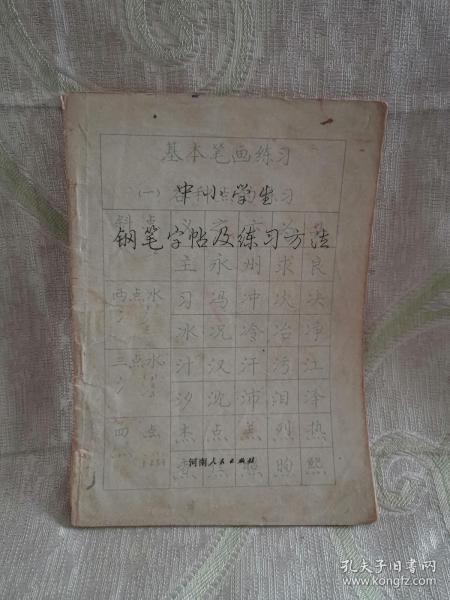 基本笔画练习
(一) 中小学生习
钢笔字帖及练习方法
主 永 州 求 良
两点水 习 冯 冲 次 决
冰 况 冷 冶 净
三点水 汁 汉 汗 污 江
汐 沈 沛 泪 泽
四点 杰 点 羔 烈 热
煦 熙
河南人民出版社
孔夫子旧书网
www.kongfz.com